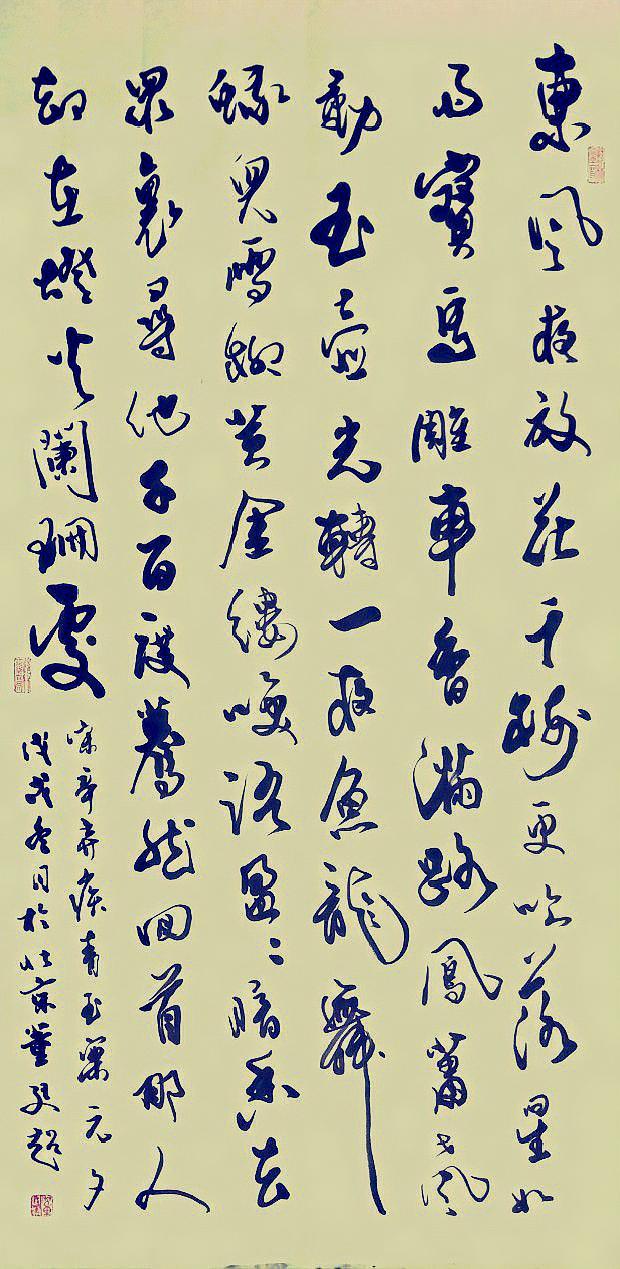 東風夜放花千樹更吹落星如
雨寶馬雕車香滿路鳳簫聲
動玉壺光轉一夜魚龍舞
蛾兒雪柳黃金縷咲語盈〻暗香去
眾裏尋他千百度驀然回首那人
却在燈火闌珊處
宋辛弃疾青玉案元夕
戊戌冬月於北京董超